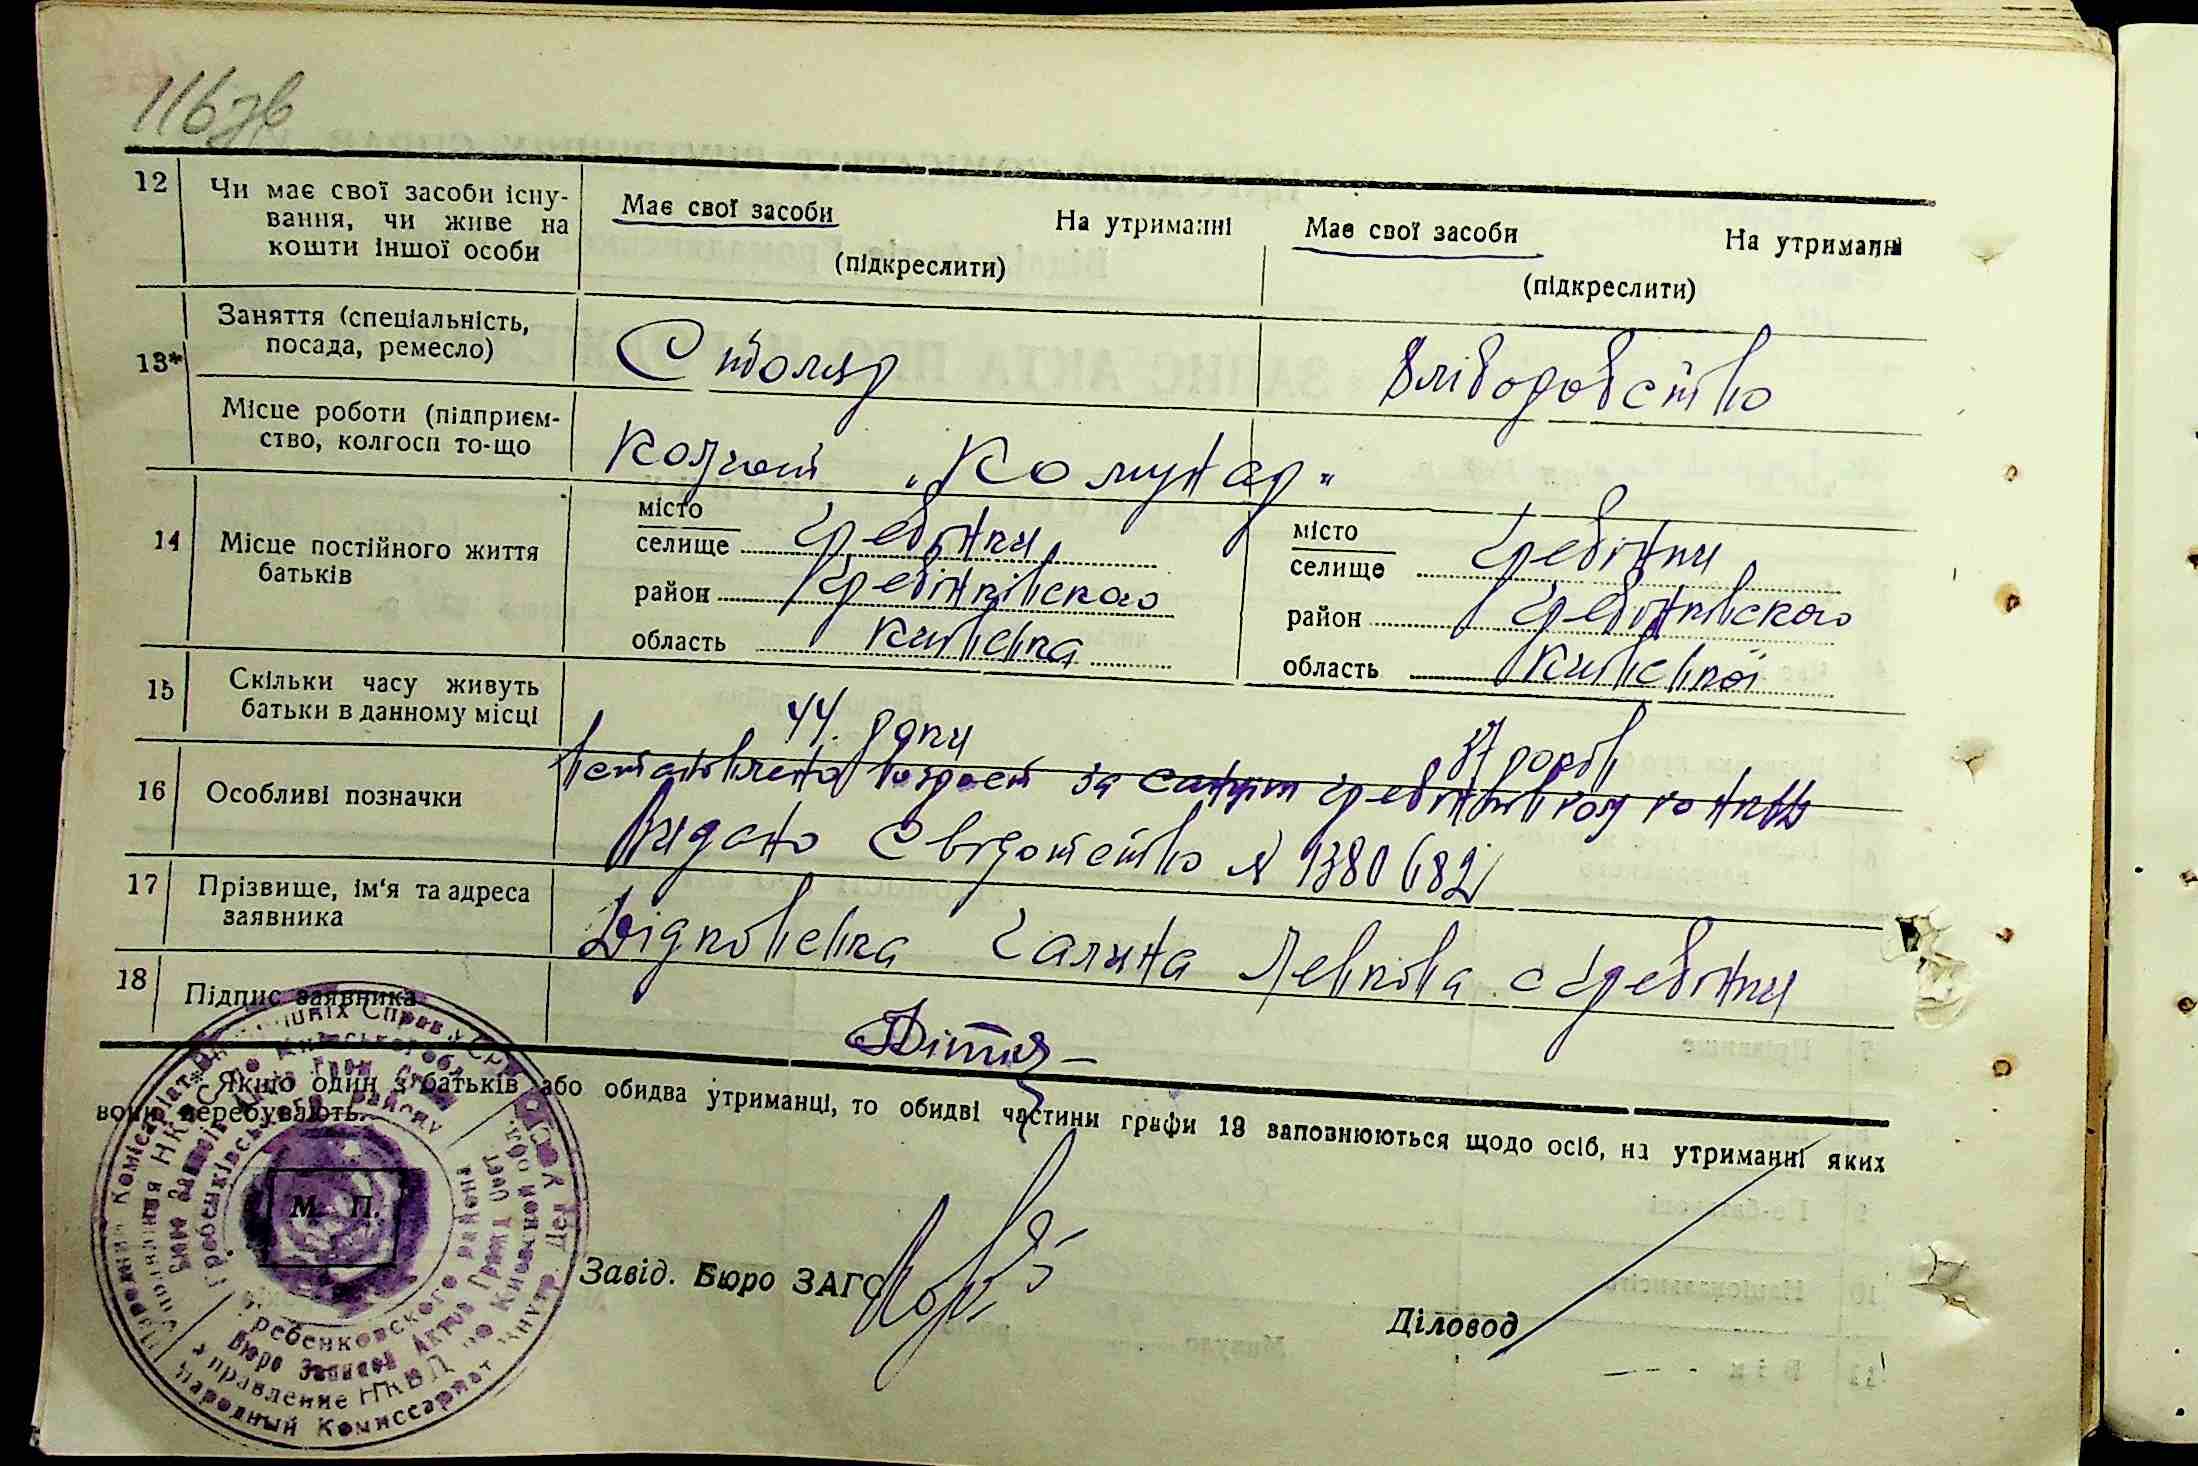 116 зв
12 Чи має свої засоби існу-
вання, чи живе на
кошти іншої особи
Має свої засоби На утриманні
(підкреслити)
Має свої засоби На утриманні
(підкреслити)
13* Заняття (спеціальність,
посада, ремесло)
Столяр
Хліборобство
Місце роботи (підприєм-
ство, колгосп то-що
Колгосп „Комунар"
14 Місце постійного життя
батьків
місто
селище Гребінки
район Гребінківского
область Київська
місто
селище Гребінки
район Гребінківского
область Київської
15 Скільки часу живуть
батьки в данному місці
44 роки
37 років
16 Особливі позначки
Встановлено возраст за
Видано Свідотство № 1380682
17 Прізвище, ім'я та адреса
заявника
Дідківська Галина Левкова с Гребінки
18 Підпис заявника
*Якщо один з батьків або обидва утриманці, то обидві частини графи 13 заповнюються щодо осіб, на утриманні яких
вони перебувають.
М. П.
Завід. Бюро ЗАГС
Діловод
Гребенковского района
Бюро Записей Актов Гражд. Сост.
Управление НКВД по Киевской обл.
Народный Комиссариат Внутр. Дел